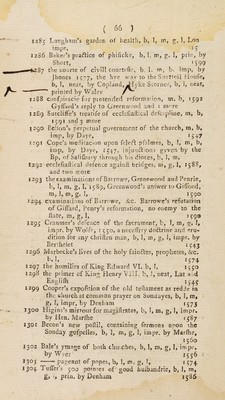 ( 66 )
1285 Langham's garden of health, b, l, m, g, l, Lon
impr, 15
1286 Baker's practice of phisicke, b, l, m, g, l, prin, by
Short, 1599
1287 the courte of civill courtesie, b. l. m, b. imp, by
Jhones 1577, the hye way to the Spyttell House,
b, l, neat, by Copland, Myke Scornes, b, l, neat,
printed by Waley
1288 Conspiracie for pretended reformation, m, b, 1592
Gyfford's reply to Greenwood and 1 more
1289 Sutcliffe's treatise of ecclesiastical descipline, m, b,
1591 and 3 more
1290 Bellon's perpetual government of the church, m, b,
imp, by Daye, 1547
1291 Cope's meditation upon select psalmes, b, l, m, b,
imp, by Daye, 1547, injunctions given by the
Bp, of Salisbury through his dioces, b, l, m,
1292 ecclesiastical defence against bridges, m, g, l, 1588,
and two more
1293 the examinations of Barrowe, Greenwood and Penrie,
b, l, m, g, l, 1589, Greenwood's answer to Giffard,
m, l, m, g, l, 1590
1294 examinations of Barrowe, &c. Barrowe's refutation
of Giffard, Penry's reformation, no enemy to the
state, m, g, l, 1590
1295 Cranmer's defence of the sacrament, b, l, m, g, l,
impr. by Wolfe, 1550, a necessary doctrine and eru-
dition for any christen man, b, l, m, g, l, impr. by
Berthelet 1543
1296 Marbecke's lives of the holy sainctes, prophetes, &c.
b, l, 1574
1297 the homilies of King Edward VI. b, l, 1550
1298 the primer of King Henry VIII. b, l, neat, Lat and
English 1545
1299 Cooper's exposition of the old testament as redde in
the church at common prayer on Sondayes, b, l, m,
g, l, impr, by Denham 1573
1300 Higins's mirrour for magistrates, b, l, m, g, l, impr.
by Hen. Marshe 1587
1301 Becon's new postil, containing sermons upon the
Sonday gospelles, b, l, m, g, l, impr. by Marshe,
1566
1302 Bale's ymage of both churches, b, l, m, g, l, impr.
by Wyer 1550
1303 —— pageant of popes, b, l, m, g, l, 1574
1304 Tusser's 500 pointes of good husbandrie, b, l, m,
g, l, prin, by Denham 1586